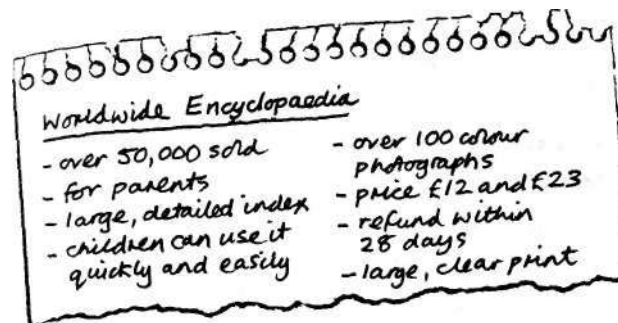 Worldwide Encyclopaedia
- over 50,000 sold
- for parents
- large, detailed index
- children can use it
quickly and easily
- over 100 colour
photographs
- price £12 and £23
- refund within
28 days
- large, clear print